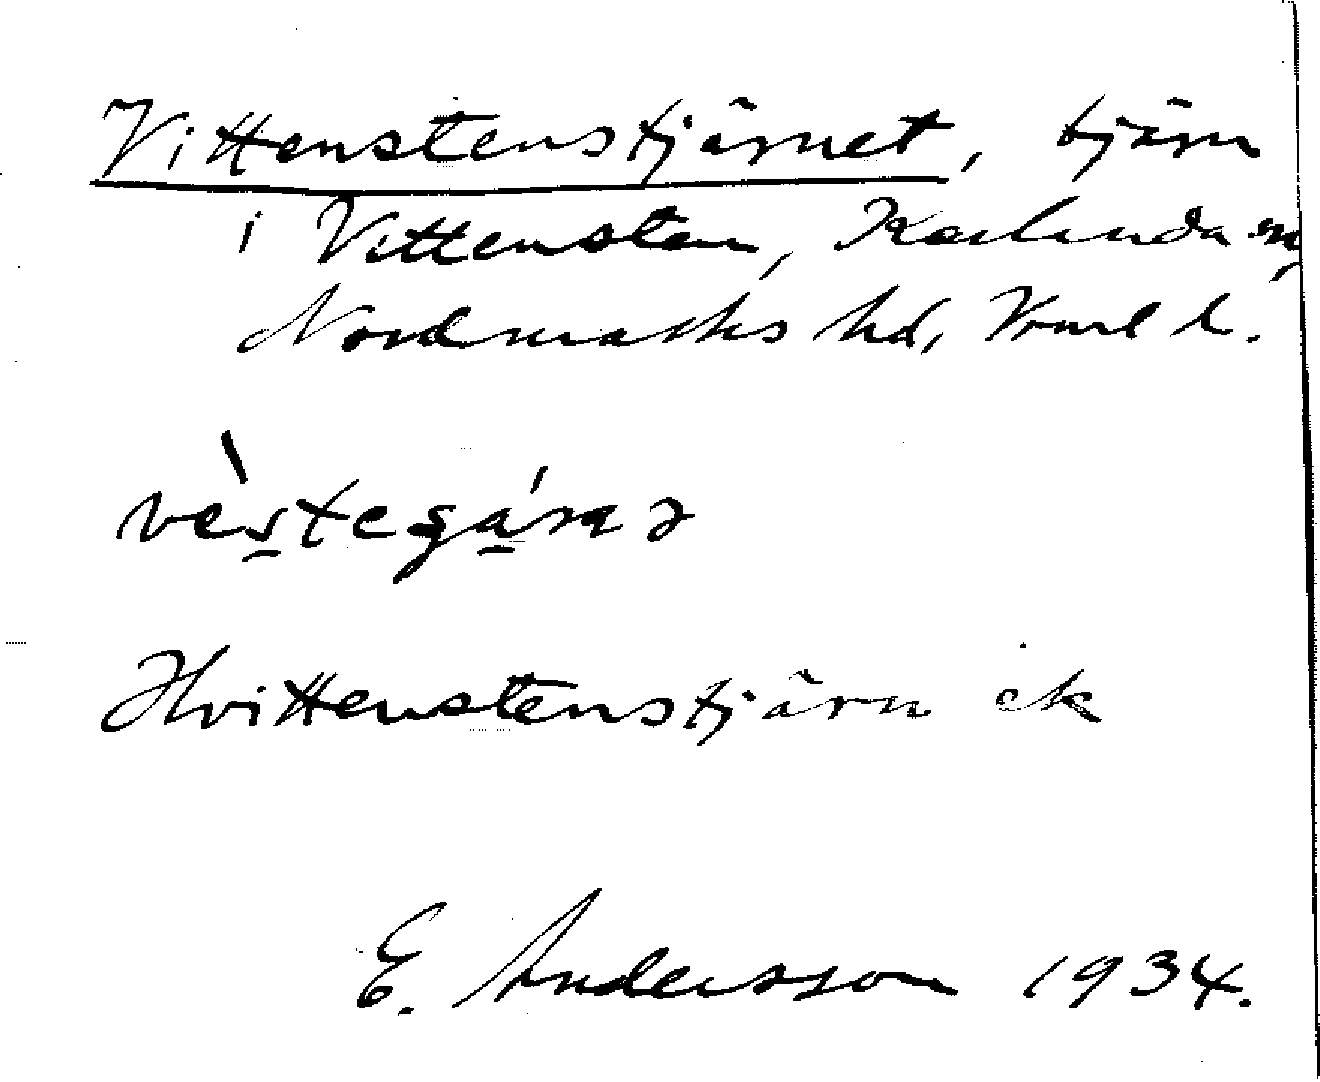 Vittenstenstjärnet, tjärn
i Vittensten, Karlanda sn,
Nordmarks hd, Vrml l.
vèstegárnə
Hvittenstenstjärn ek
E. Andersson 1934.